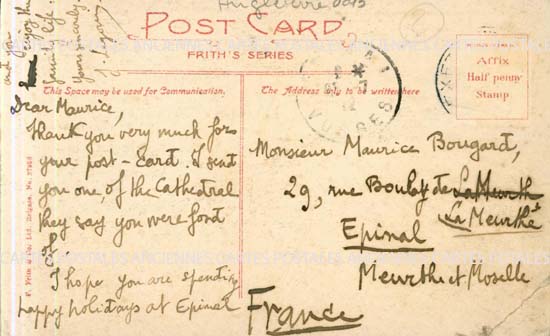 Angleterre
POST CARD.
FRITH'S SERIES
This Space may be used for Communication.
The Address only to be written here
Affix
Half penny
Stamp
Dear Maurice,
Thank you very much for
your post-card. I sent
you one, of the Cathedral
they say you were fond
of.
I hope you are spending
happy holidays at Epinal
and you
enjoy the
farming life.
Yours sincerely,
Monsieur Maurice Bougard,
29, rue Boulay de La Meurth
La Meurthe
Epinal
Meurthe et Moselle
France
F. Frith & Co. Ltd., Reigate. No.
CARTES POSTALES ANCIENNES